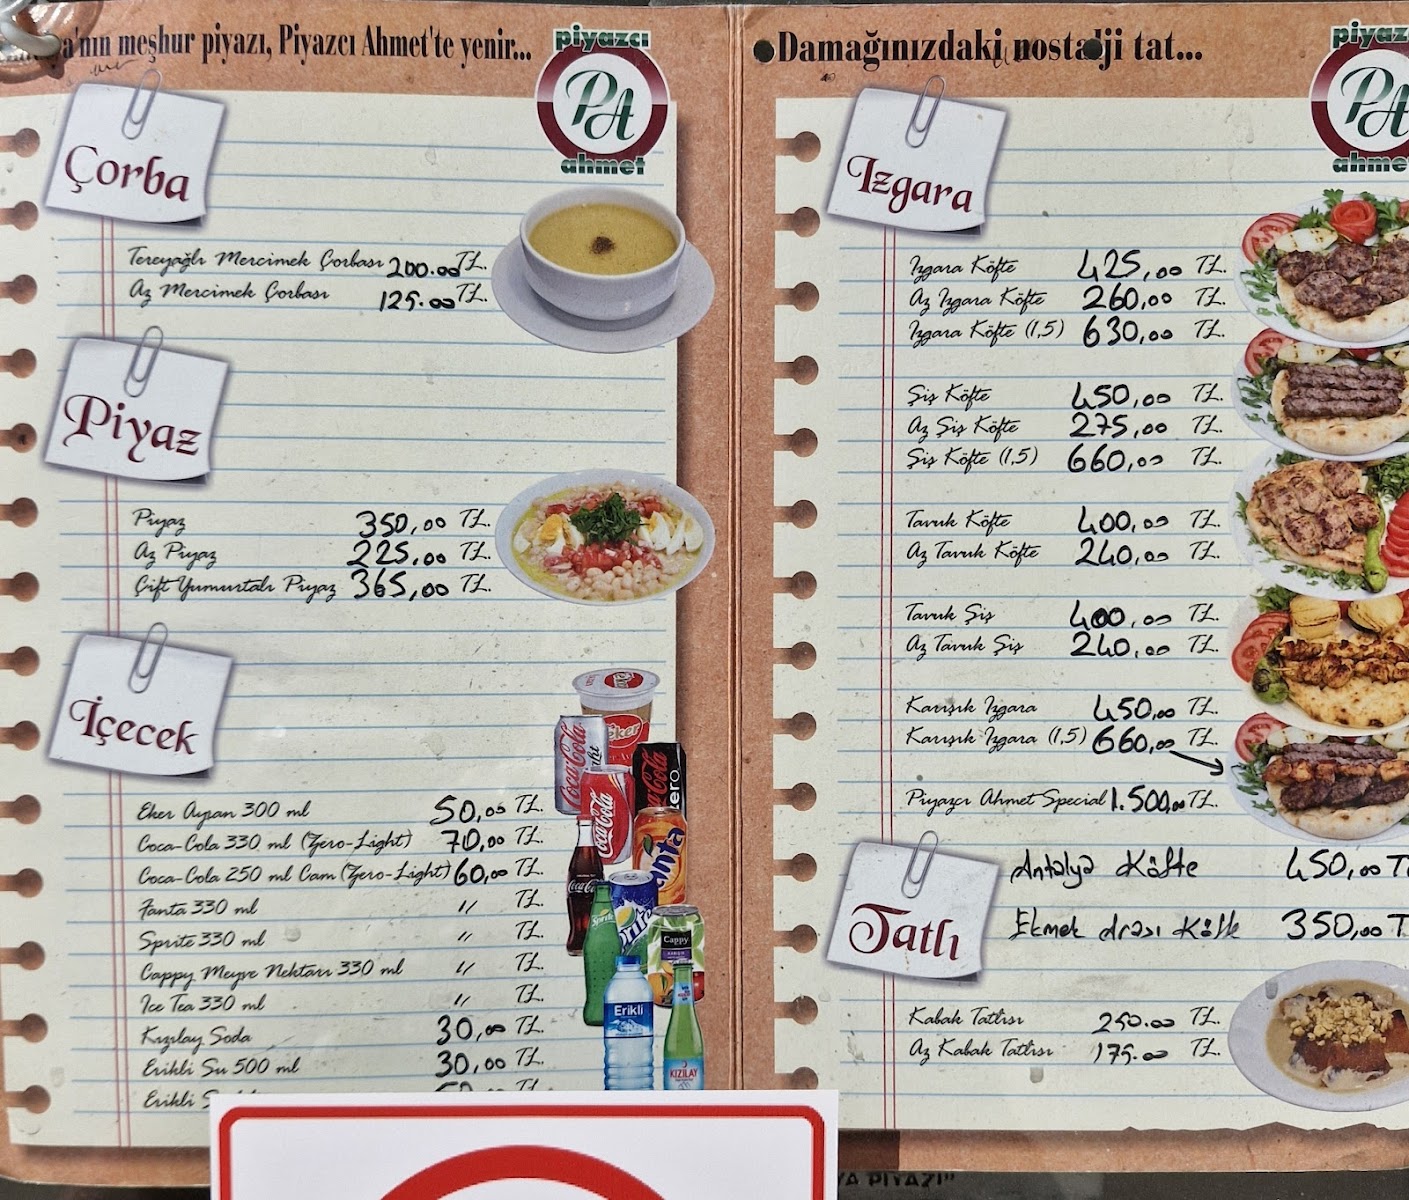 meşhur piyazı, Piyazcı Ahmet'te yenir...
piyazcı
PA
ahmet
Çorba
Tereyağlı Mercimek Çorbası 200.00 TL.
Az Mercimek Çorbası 125.00 TL.
Piyaz
Piyaz 350,00 TL.
Az Piyaz 225,00 TL.
Çift Yumurtalı Piyaz 365,00 TL.
İçecek
Eker Ayran 300 ml 50,00 TL.
Coca-Cola 330 ml (Zero-Light) 70,00 TL.
Coca-Cola 250 ml Cam (Zero-Light) 60,00 TL.
Fanta 330 ml " TL.
Sprite 330 ml " TL.
Cappy Meyve Nektarı 330 ml " TL.
Ice Tea 330 ml " TL.
Kızılay Soda 30,00 TL.
Erikli Su 500 ml 30,00 TL.
Erikli
Coca-Cola
Coca-Cola
Coca-Cola
zero
eker
Fanta
Sprite
Sprite
Cappy
Erikli
KIZILAY
Damağınızdaki nostalji tat...
PA
Izgara
Izgara Köfte 425,00 TL.
Az Izgara Köfte 260,00 TL.
Izgara Köfte (1,5) 630,00 TL.
Şiş Köfte 450,00 TL.
Az Şiş Köfte 275,00 TL.
Şiş Köfte (1,5) 660,00 TL.
Tavuk Köfte 400,00 TL.
Az Tavuk Köfte 240,00 TL.
Tavuk Şiş 400,00 TL.
Az Tavuk Şiş 240,00 TL.
Karışık Izgara 450,00 TL.
Karışık Izgara (1,5) 660,00 TL.
Piyazcı Ahmet Special 1.500,00 TL.
Antalya Köfte 450,00 T
Ekmek Arası Köfte 350,00 T
Tatlı
Kabak Tatlısı 250.00 TL.
Az Kabak Tatlısı 175.00 TL.
PİYAZI"